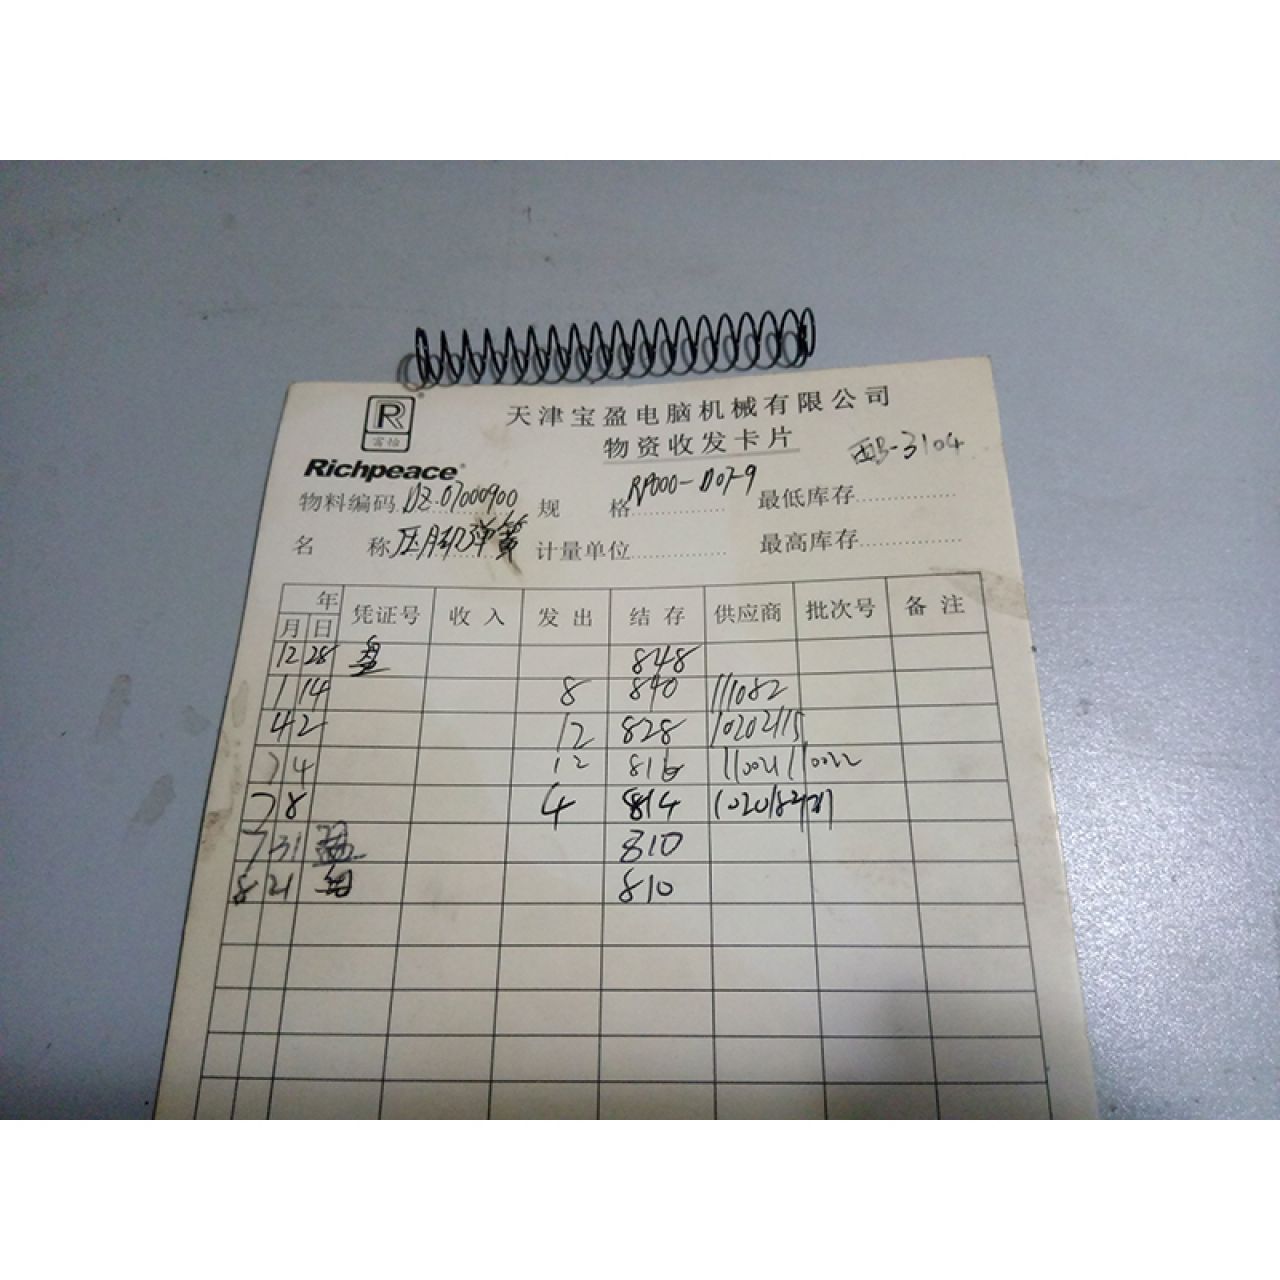 R
富怡
Richpeace
天津宝盈电脑机械有限公司
物资收发卡片
西B-3104
物料编码 DZ.07000900 规 格 RP000-D07-9 最低库存
名 称 压脚弹簧 计量单位 最高库存
年 凭证号 收 入 发 出 结 存 供应商 批次号 备 注
月 日
12 28 盘 848
1 14 8 840 111082
4 2 12 828 10202115
7 4 12 816 110021 110022
7 8 4 814
7 31 盘 810
8 21 810